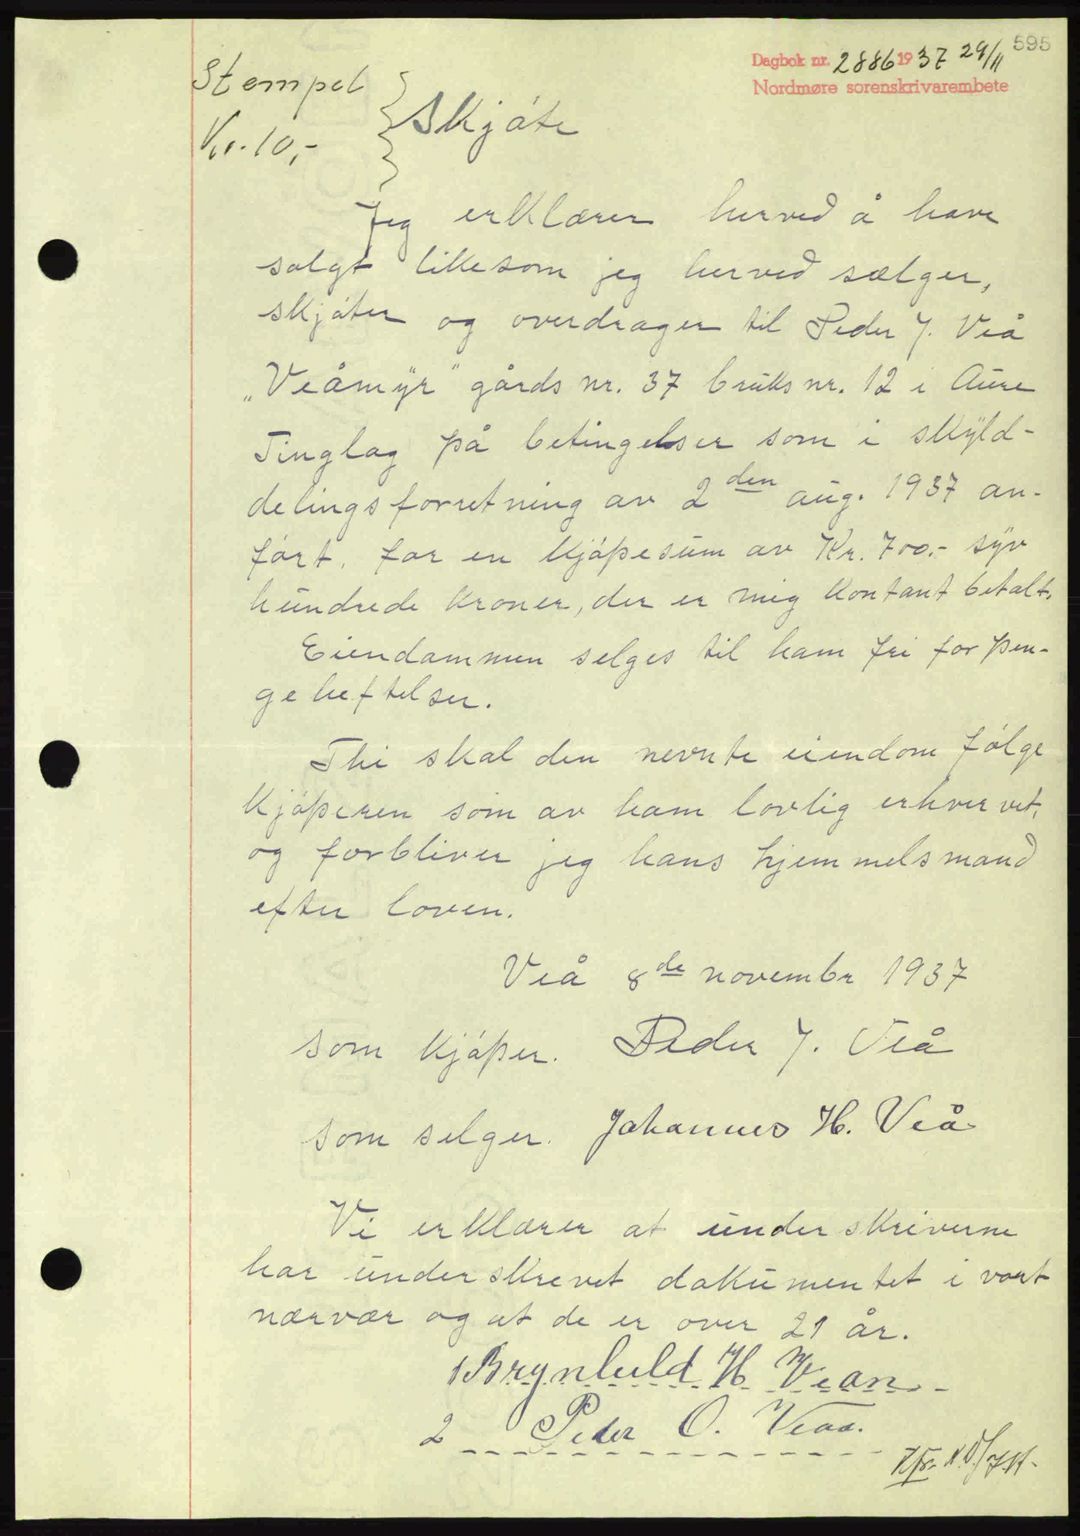 595
Dagbok nr. 2886 1937 29/11
Nordmøre sorenskrivarembete
Stempel
Kr. 10,-
Skjøte
Jeg erklærer herved å have
solgt likesom jeg herved sælger,
skjøter og overdrager til Peder J. Veå
„Veåmyr" gårds nr. 37 bruks nr. 12 i Aure
Tinglag på betingelser som i skyld-
delingsforretning av 2den aug. 1937 an-
ført, for en kjøpesum av Kr. 700.- syv
hundrede kroner, der er mig kontant betalt.
Eiendommen selges til ham fri for pen-
geheftelser.
Thi skal den nevnte eiendom følge
kjøperen som av ham lovlig erhvervet,
og forbliver jeg hans hjemmelsmand
efter loven.
Veå 8de novembr 1937
som kjøper. Peder J. Veå
som selger. Johannes H. Veå
Vi erklærer at underskriverne
har underskrevet dokumentet i vort
nærvær og at de er over 21 år.
1 Brynhuld H. Vean
2 Peder O. Veaa.